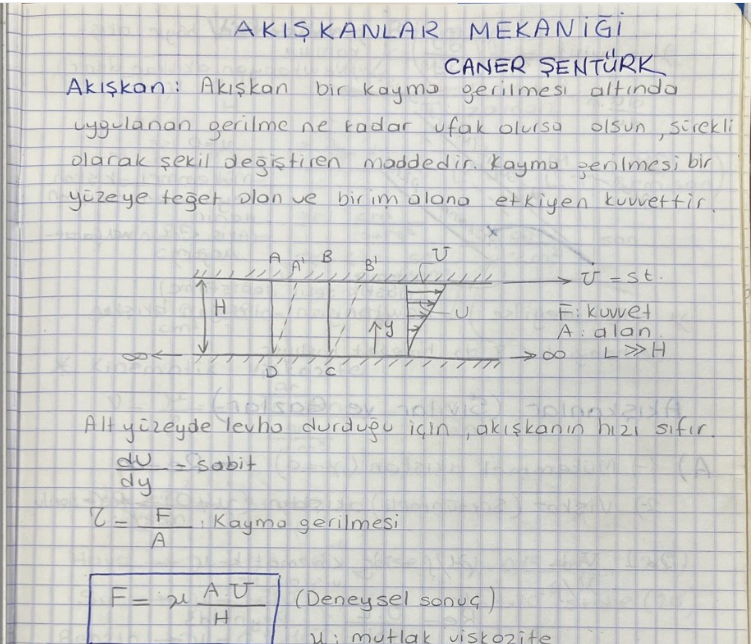 AKIŞKANLAR MEKANİĞİ
CANER ŞENTÜRK
Akışkan: Akışkan bir kayma gerilmesi altında
uygulanan gerilme ne kadar ufak olursa olsun, sürekli
olarak şekil değiştiren maddedir. Kayma gerilmesi bir
yüzeye teğet olan ve birim alana etkiyen kuvvettir.
A A' B B' U
U = st.
H U F: kuvvet
y A: alan
∞ ∞ L >> H
D C
Alt yüzeyde levha durduğu için, akışkanın hızı sıfır.
dU/dy = sabit
τ = F/A : Kayma gerilmesi
F = μ A U/H (Deneysel sonuç)
μ: mutlak viskozite